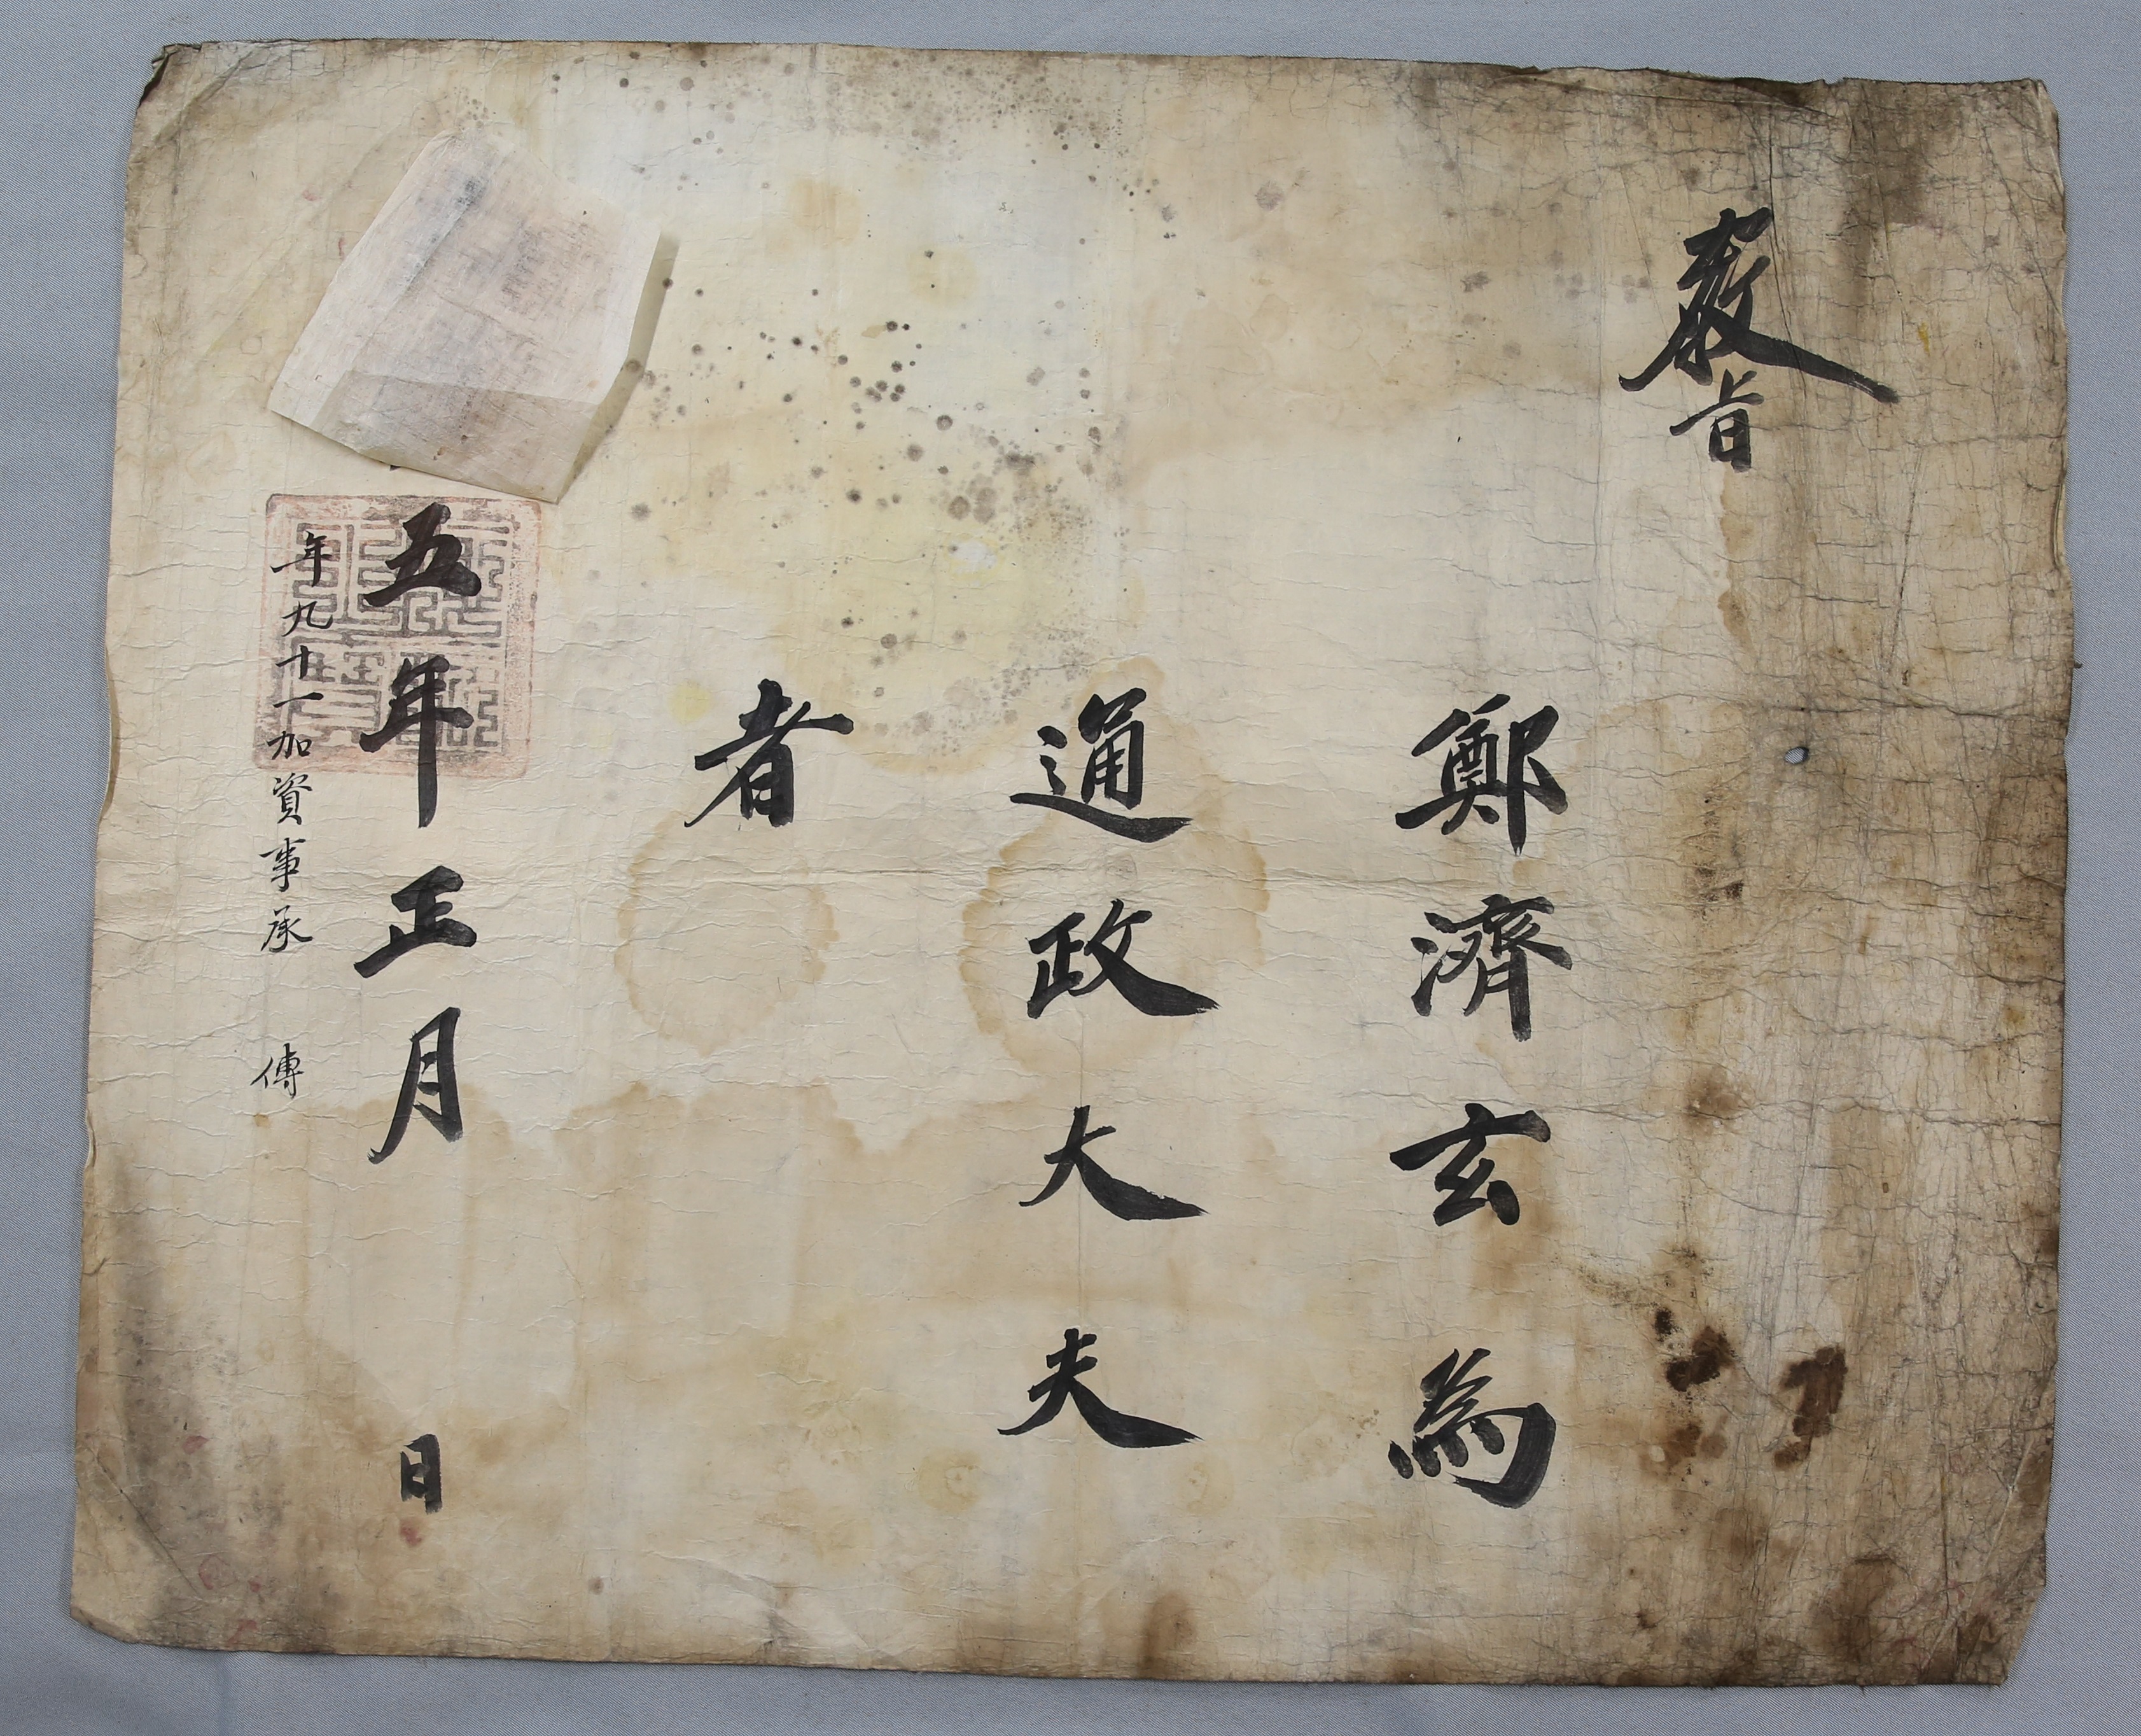 敎旨
鄭濟玄爲
通政大夫
者
五年正月 日
年九十一加資事承 傳